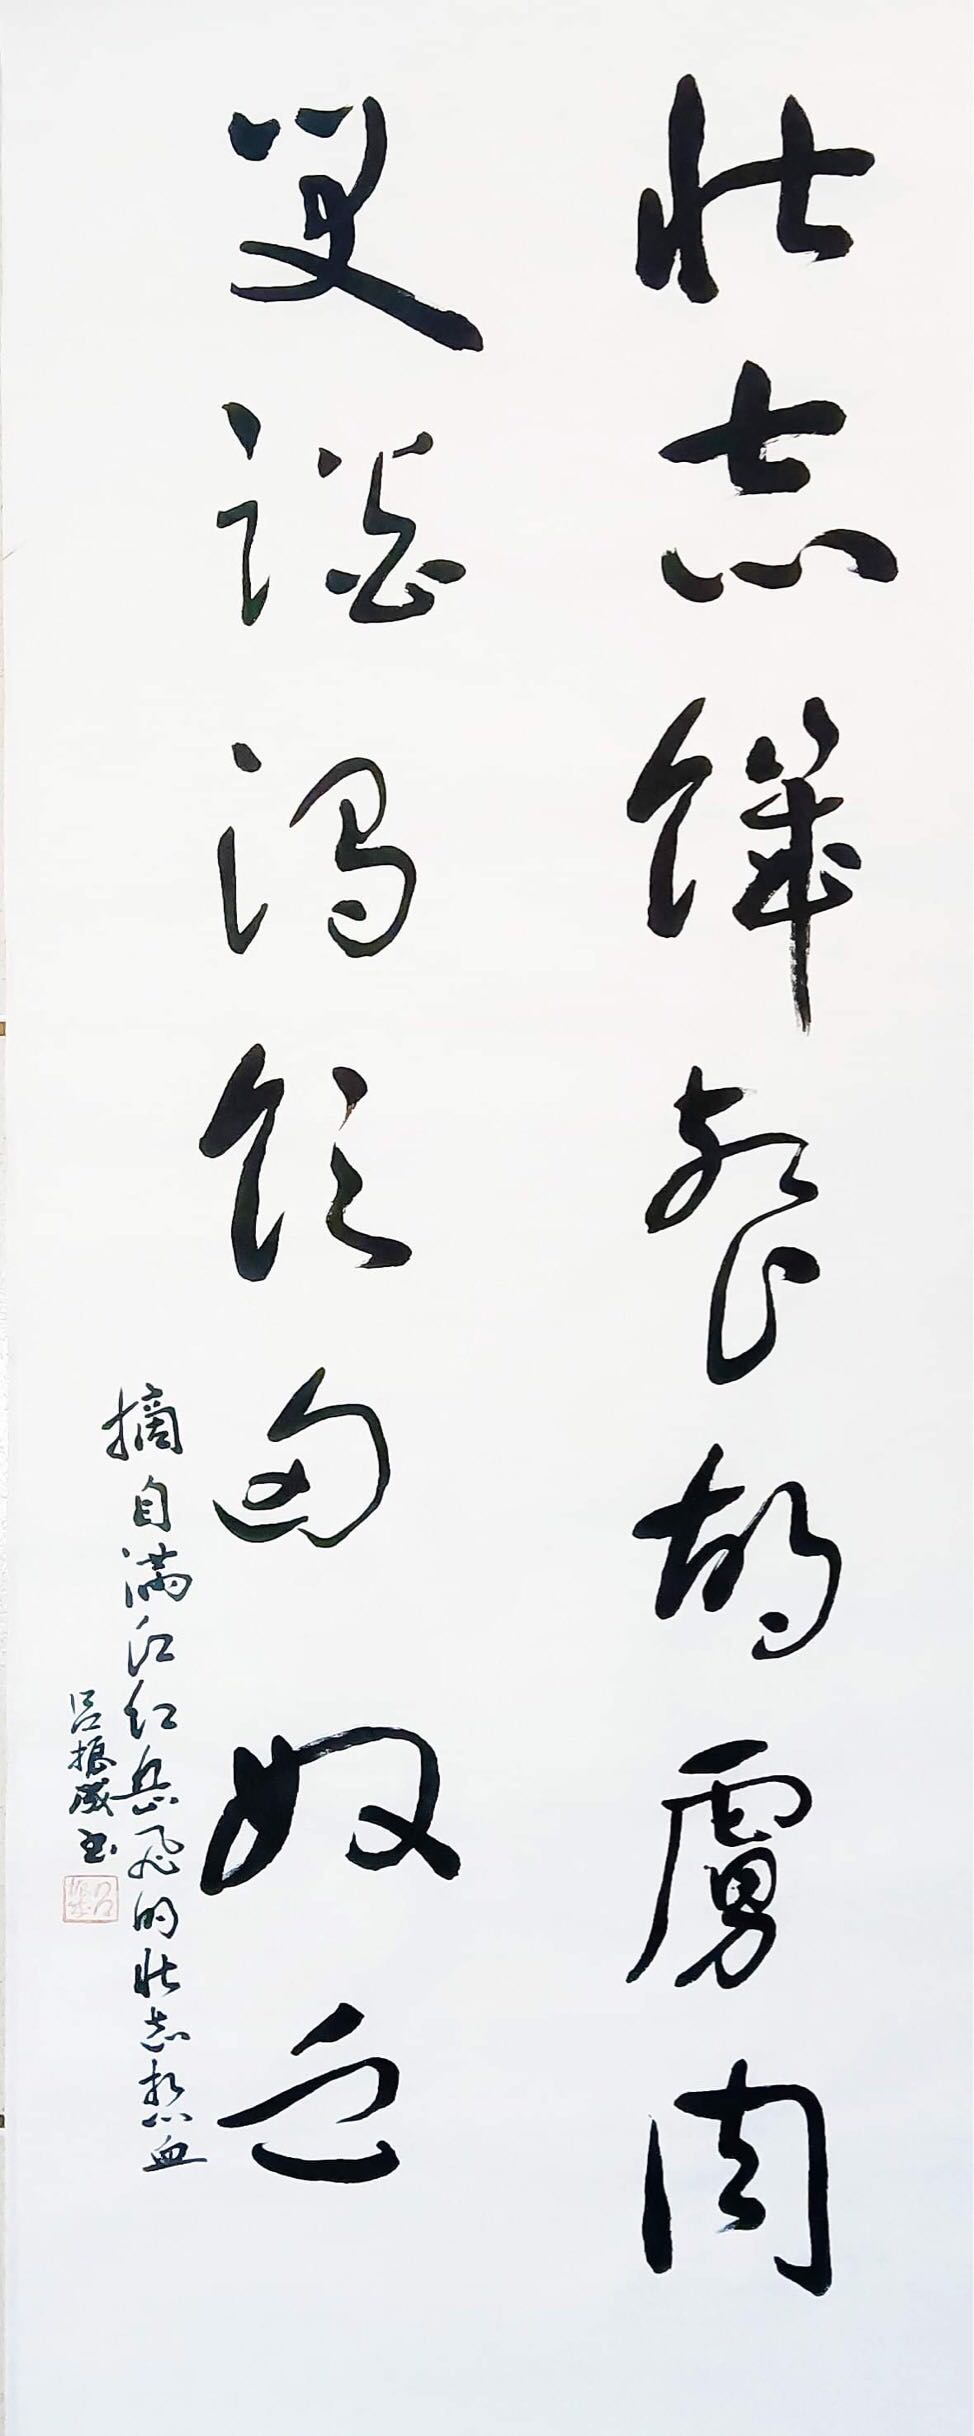 壯志饑餐胡虜肉
笑談渴飲匈奴血
摘自满江红岳飞的壮志热血
吕振书